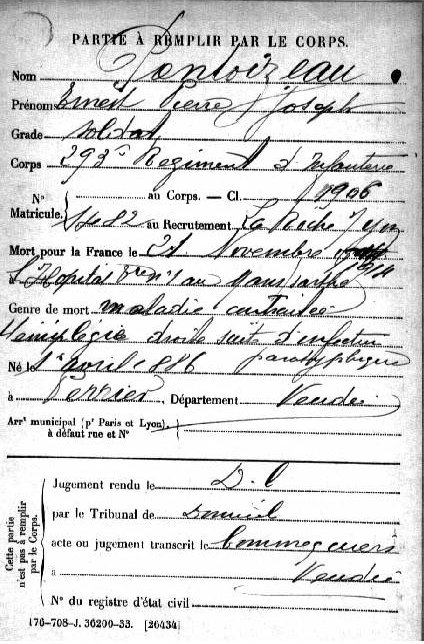 PARTIE À REMPLIR PAR LE CORPS.
Nom Pontoizeau
Prénom Ernest Pierre Joseph
Grade soldat
Corps 293e Régiment d'Infanterie
N° au Corps. — Cl. 1906
Matricule. 1482 au Recrutement La Roche s/ Yon
Mort pour la France le 21 Novembre 1914
à l'Hôpital au Mans Sarthe
Genre de mort maladie contractée
Hémiplégie droite suite d'infection
paratyphique
Né le 1er avril 1886
à Perrier, Département Vendée
Arrt municipal (pr Paris et Lyon),
à défaut rue et N°
Cette partie n'est pas à remplir par le Corps.
Jugement rendu le D.C
par le Tribunal de Domicile
acte ou jugement transcrit le Commequiers
à Vendée
N° du registre d'état civil
176-708-J. 36200-33. [26434]